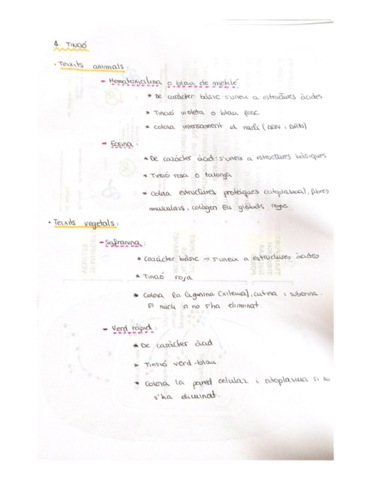 4. TINCIÓ
· Teixits animals:
- Hematoxilina o blau de metilè
* DE caràcter bàsic s'uneix a estructures àcides
* Tinció violeta o blau fosc
* Colora intensament el nucli (ADN i ARN)
- Eosina:
* DE caràcter àcid s'uneix a estructures bàsiques
* Tinció rosa o taronja
* Colora estructures protèiques (citoplasma), fibres
musculars, colàgen els glòbuls rojos
· Teixits vegetals:
- Safranina:
* Caràcter bàsic → s'uneix a estructures àcides
* Tinció roja
* Colora la lignina (xilema), cutina i suberina.
El nucli si no s'ha eliminat
- Verd ràpid:
* De caràcter àcid
* Tinció verd-blau
* Colora la paret celular i citoplasma si no
s'ha eliminat